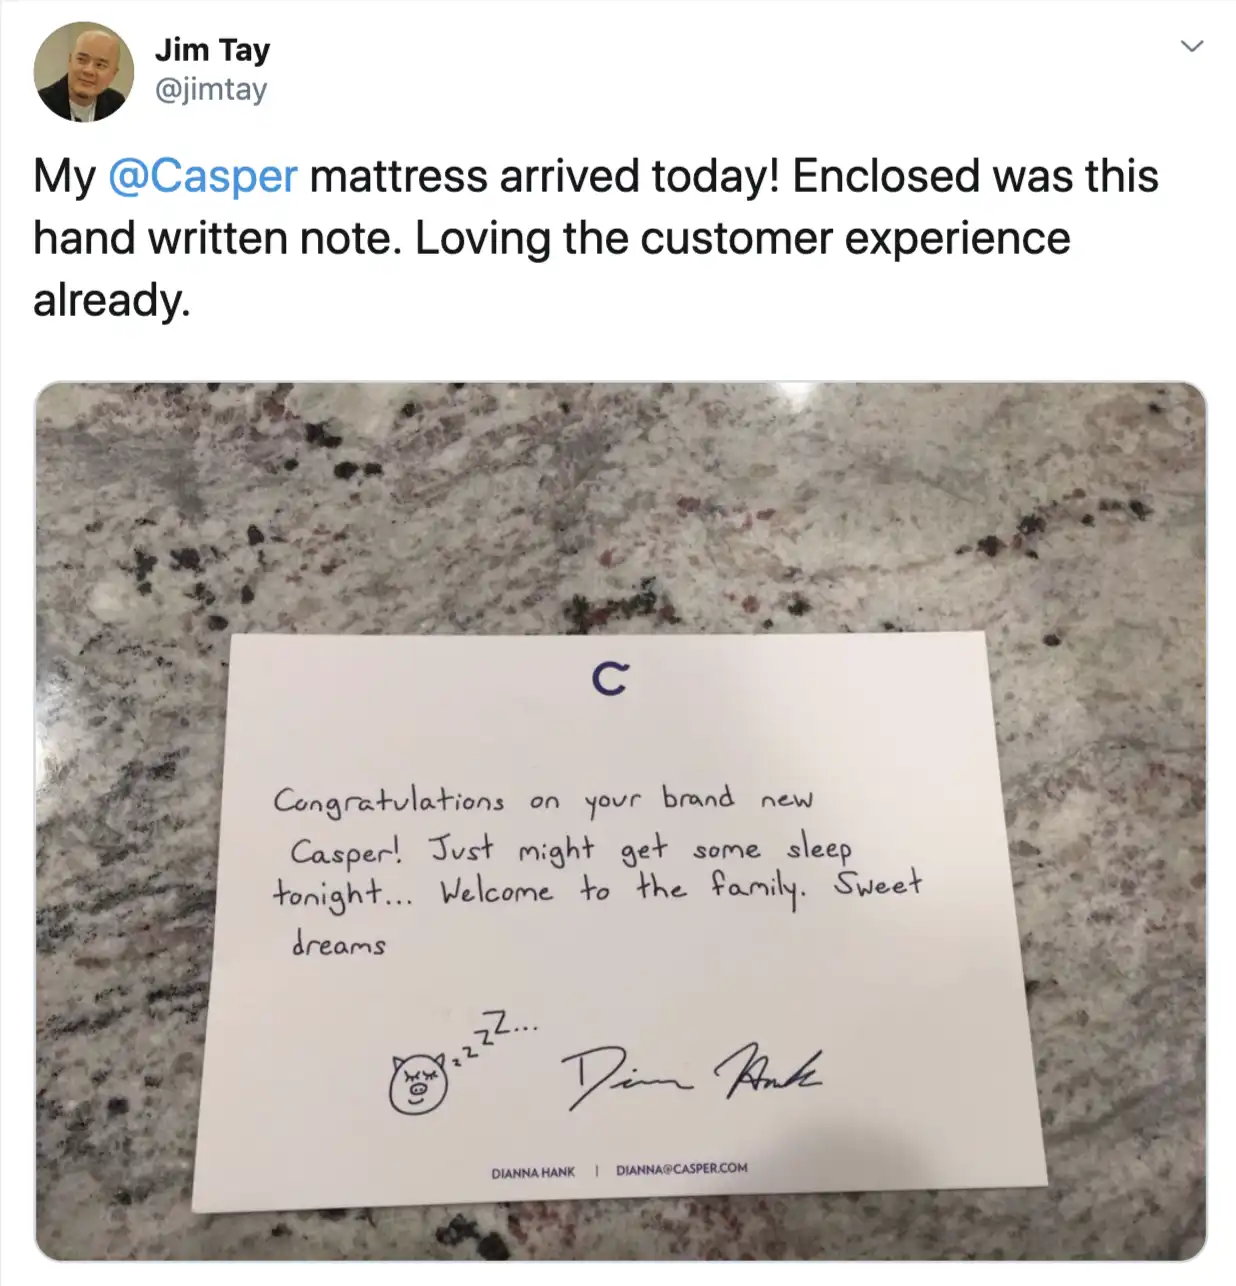 Jim Tay
@jimtay
My @Casper mattress arrived today! Enclosed was this
hand written note. Loving the customer experience
already.
C
Congratulations on your brand new
Casper! Just might get some sleep
tonight... Welcome to the family. Sweet
dreams
z z z Z...
DIANNA HANK | DIANNA@CASPER.COM